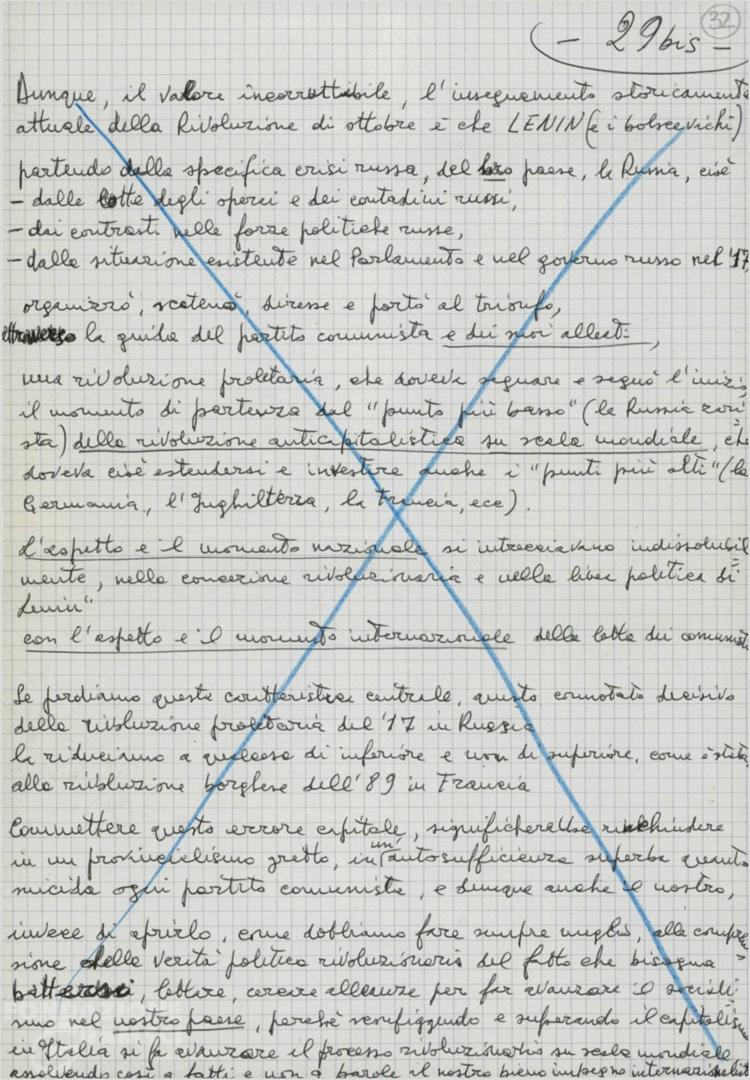 32
- 29bis -
Dunque, il valore incorruttibile, l'insegnamento storicamente
attuale della Rivoluzione di ottobre è che LENIN (e i bolscevichi)
partendo dalla specifica crisi russa, del loro paese, la Russia, cioè
- dalle lotte degli operai e dei contadini russi,
- dai contrasti nelle forze politiche russe,
- dalla situazione esistente nel Parlamento e nel governo russo nel '17
organizzò, scatenò, diresse e portò al trionfo,
attraverso la guida del partito comunista e dei suoi alleati,
una rivoluzione proletaria, che doveva segnare e segnò l'inizio,
il momento di partenza dal "punto più basso" (la Russia zari=
sta) della rivoluzione anticapitalistica su scala mondiale, che
doveva cioè estendersi e investire anche i "punti più alti" (la
Germania, l'Inghilterra, la Francia, ecc).
L'aspetto e il momento nazionale si intrecciavano indissolubil=
mente, nella concezione rivoluzionaria e nella linea politica di
Lenin"
con l'aspetto e il momento internazionale della lotta dei comunisti
Se perdiamo questa caratteristica centrale, questo connotato decisivo
della rivoluzione proletaria del '17 in Russia
la riduciamo a qualcosa di inferiore e non di superiore, come è stata,
alla rivoluzione borghese dell'89 in Francia
Commettere questo errore capitale, significherebbe rinchiudere
in un provincialismo gretto, in un' autosufficienza superba quanto
suicida ogni partito comunista, e dunque anche il nostro,
invece di aprirlo, come dobbiamo fare sempre meglio, alla compren=
sione della verità politica rivoluzionaria del fatto che bisogna
battersi, lottare, cercare alleanze per far avanzare il sociali=
smo nel nostro paese, perché sconfiggendo e superando il capitalismo
in Italia si fa avanzare il processo rivoluzionario su scala mondiale
assolvendo così a fatti e non a parole il nostro pieno impegno internazionalista